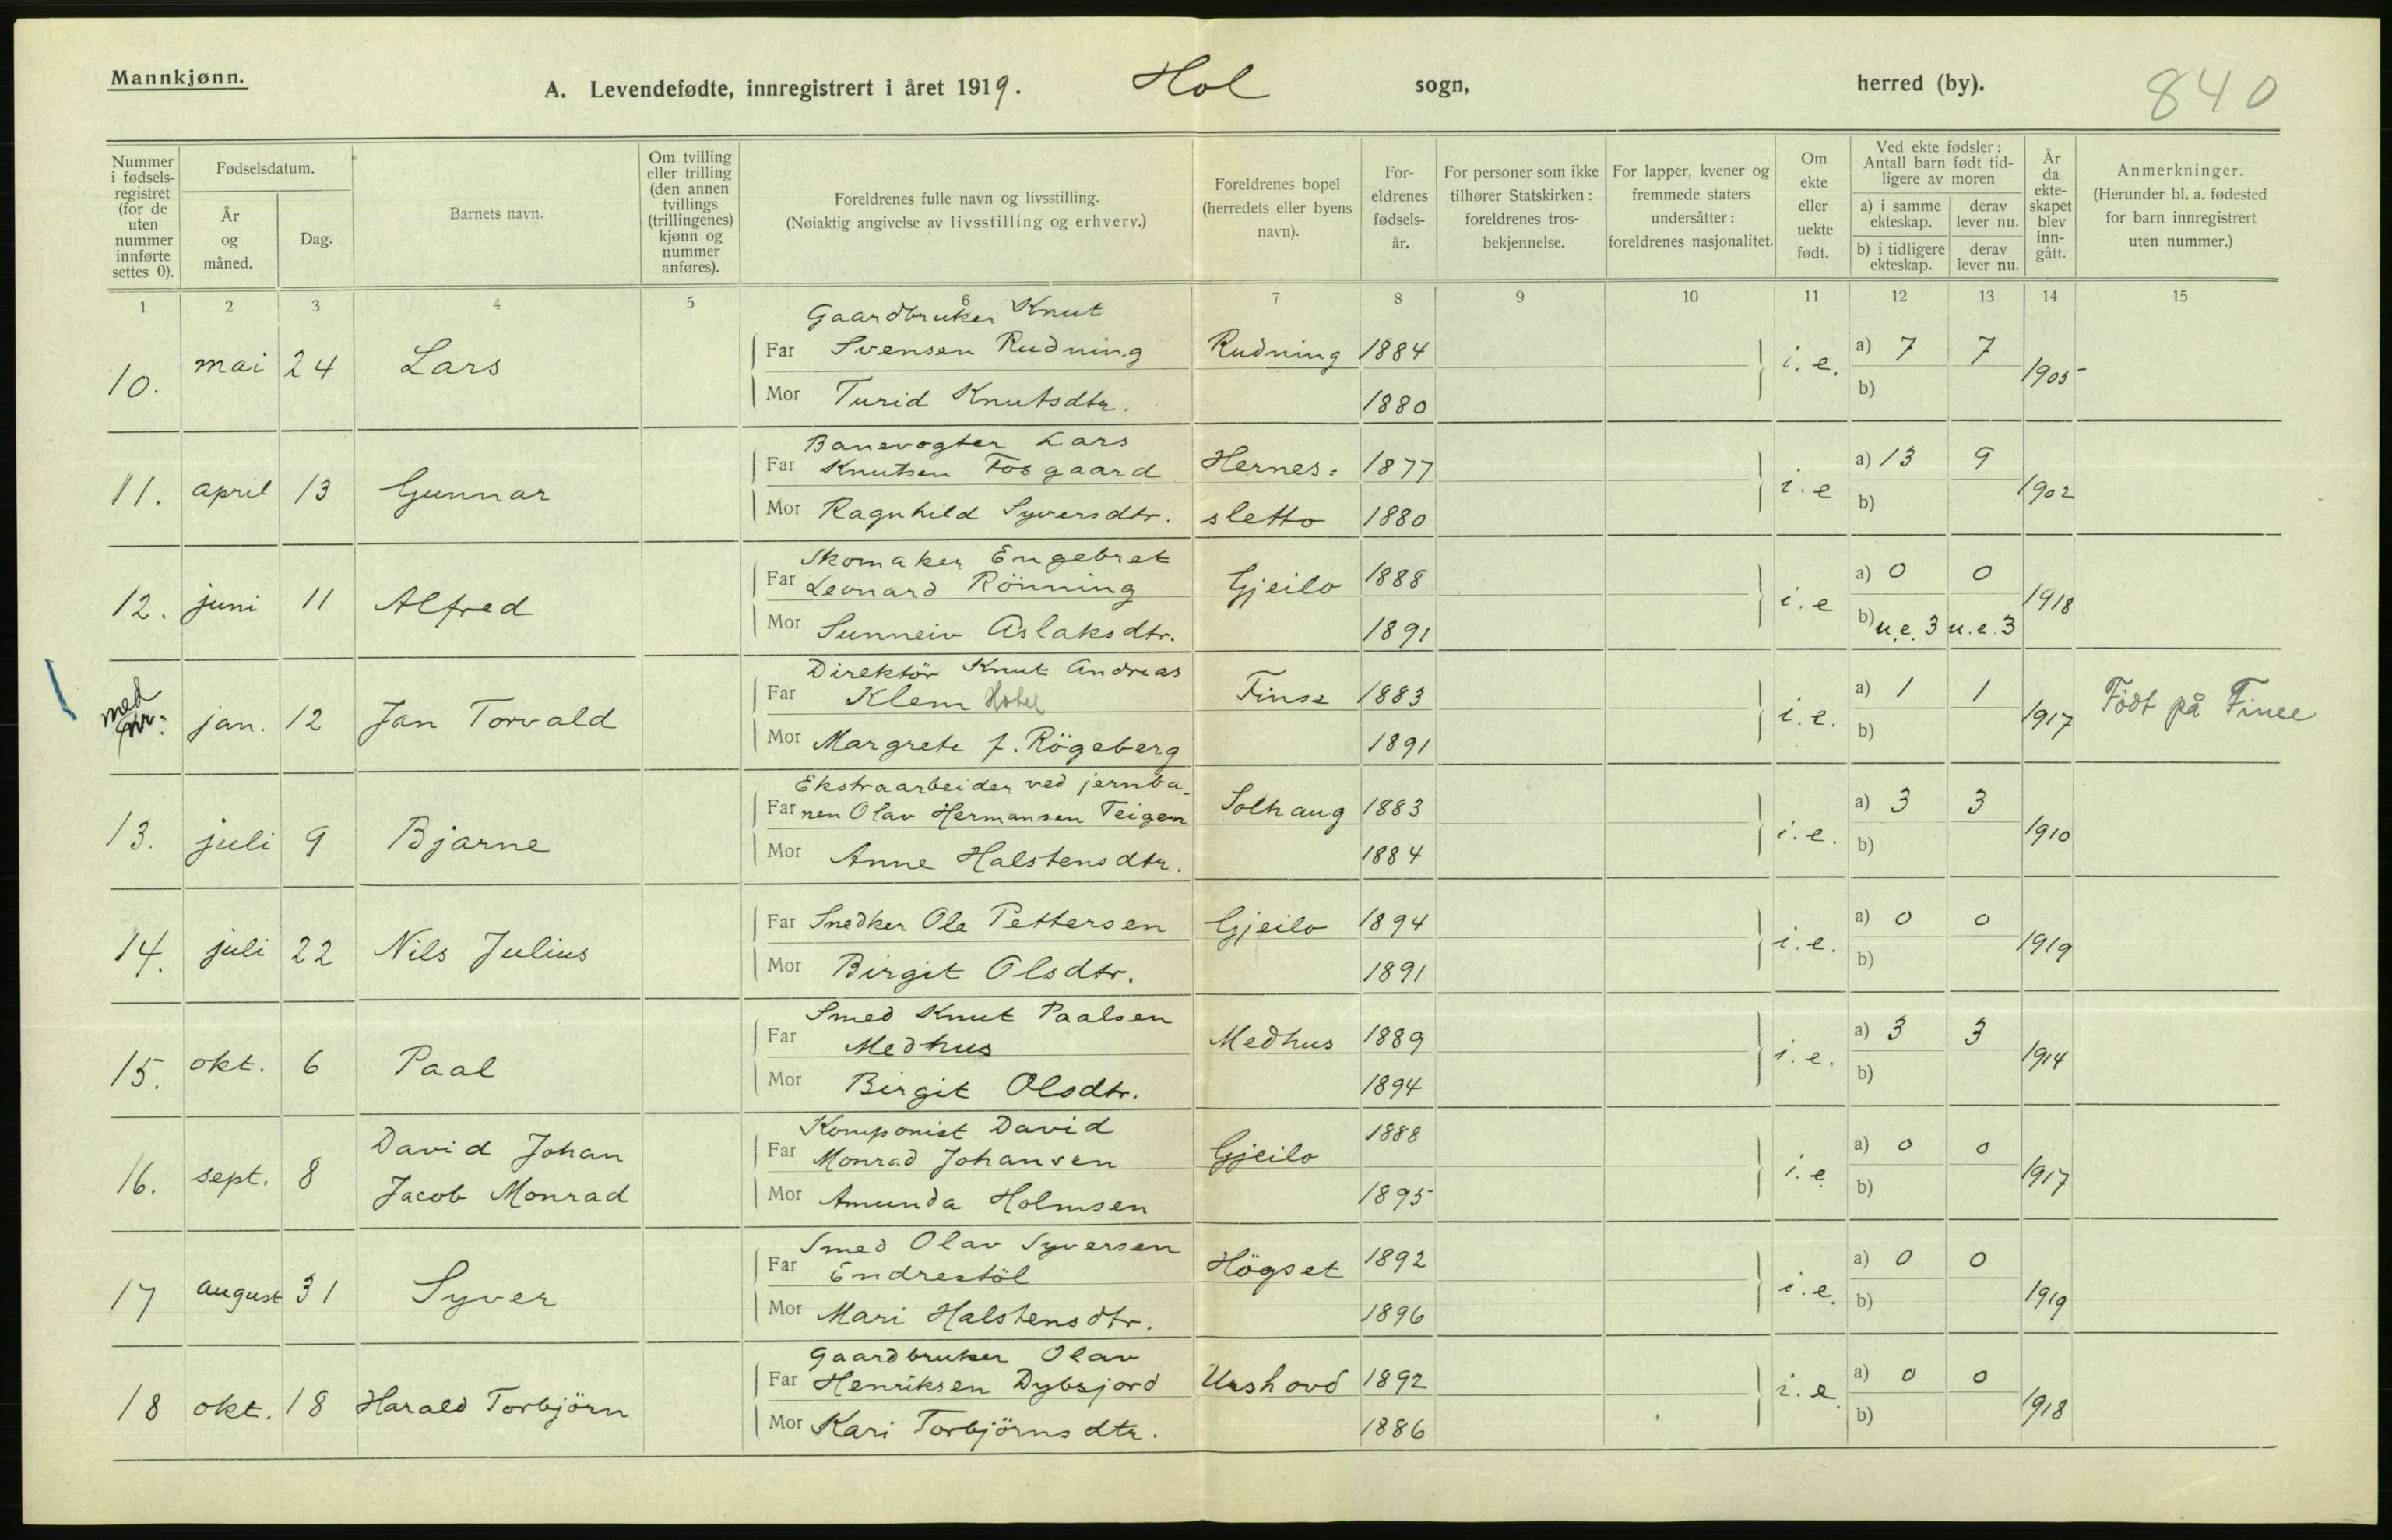 Mannkjønn.
A. Levendefødte, innregistrert i året 1919. Hol sogn, herred (by). 840
Nummer i fødsels-registret (for de uten nummer innførte settes 0).
Fødselsdatum.
År og måned.
Dag.
Barnets navn.
Om tvilling eller trilling (den annen tvillings (trillingenes) kjønn og nummer anføres).
Foreldrenes fulle navn og livsstilling.
(Nøiaktig angivelse av livsstilling og erhverv.)
Foreldrenes bopel (herredets eller byens navn).
For-eldrenes fødsels-år.
For personer som ikke tilhører Statskirken: foreldrenes tros-bekjennelse.
For lapper, kvener og fremmede staters undersåtter: foreldrenes nasjonalitet.
Om ekte eller uekte født.
Ved ekte fødsler: Antall barn født tid-ligere av moren
a) i samme ekteskap. derav lever nu.
b) i tidligere ekteskap. derav lever nu.
År da ekte-skapet blev inn-gått.
Anmerkninger.
(Herunder bl. a. fødested for barn innregistrert uten nummer.)
1 2 3 4 5 6 7 8 9 10 11 12 13 14 15
Gaardbruker Knut
10. mai 24 Lars Far Svensen Rudning Rudning 1884 i.e. a) 7 7 1905
Mor Turid Knutsdtr. 1880 b)
Banevogter Lars
11. april 13 Gunnar Far Knutsen Fosgaard Hernes= 1877 i.e a) 13 9 1902
Mor Ragnhild Syversdtr. sletto 1880 b)
Skomaker Engebret
12. juni 11 Alfred Far Leonard Rönning Gjeilo 1888 i.e a) 0 0 1918
Mor Sunneiv Aslaksdtr. 1891 b) u.e. 3 u.e. 3
Direktör Knut Andreas
med nr: jan. 12 Jan Torvald Far Klem Hotel Finse 1883 i.e. a) 1 1 1917 Födt på Finse
Mor Margrete f. Rögeberg 1891 b)
Ekstraarbeider ved jernba-
13. juli 9 Bjarne Far nen Olav Hermansen Teigen Solhaug 1883 i.e. a) 3 3 1910
Mor Anne Halstensdtr. 1884 b)
14. juli 22 Nils Julius Far Snedker Ole Pettersen Gjeilo 1894 i.e. a) 0 0 1919
Mor Birgit Olsdtr. 1891 b)
Smed Knut Paalsen
15. okt. 6 Paal Far Medhus Medhus 1889 i.e. a) 3 3 1914
Mor Birgit Olsdtr. 1894 b)
Komponist David
16. sept. 8 David Johan Jacob Monrad Far Monrad Johansen Gjeilo 1888 i.e. a) 0 0 1917
Mor Amunda Holmsen 1895 b)
Smed Olav Syversen
17 august 31 Syver Far Endrestöl Högset 1892 i.e. a) 0 0 1919
Mor Mari Halstensdtr. 1896 b)
Gaardbruker Olav
18 okt. 18 Harald Torbjörn Far Henriksen Dybsjord Urshovd 1892 i.e. a) 0 0 1918
Mor Kari Torbjörnsdtr. 1886 b)